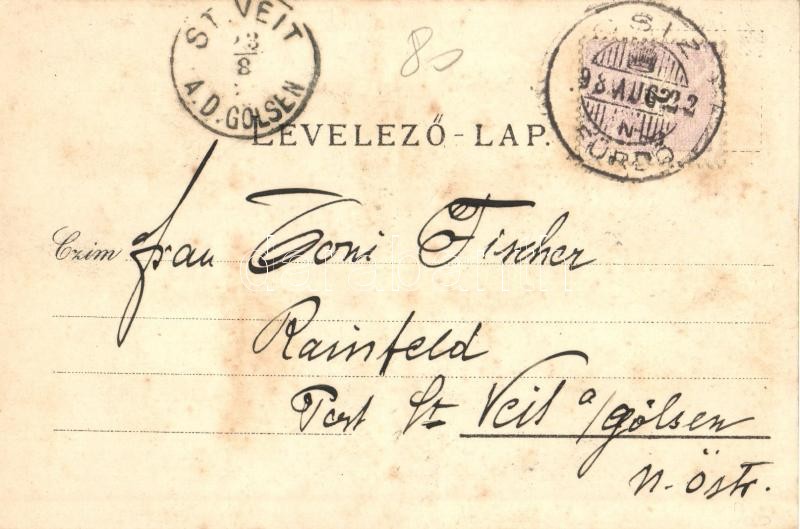 ST. VEIT
A.D. GÖLSEN
80
CSIZ
98 AUG 22
N
FÜRDŐ
LEVELEZŐ-LAP.
Czim Frau Toni Fischer
Rainfeld
Post St Veit a/gölsen
N. Östr.